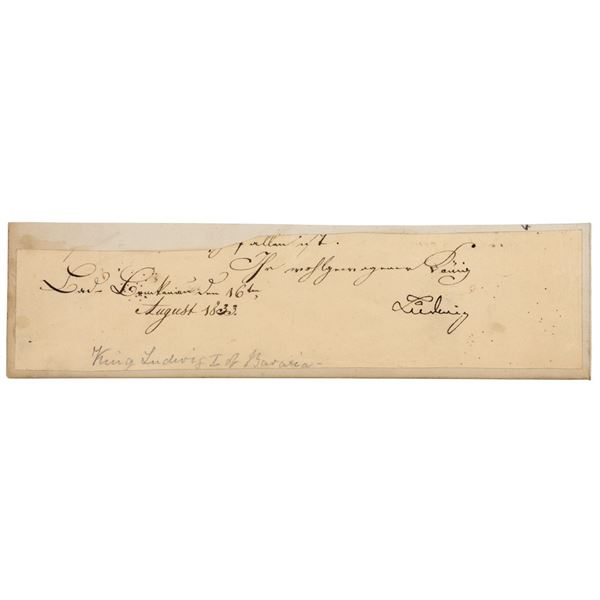 fallen ist.
Ihr wohlgewogener König
Bad- Brückenau den 16ten
August 1833.
Ludwig
King Ludwig I of Bavaria-